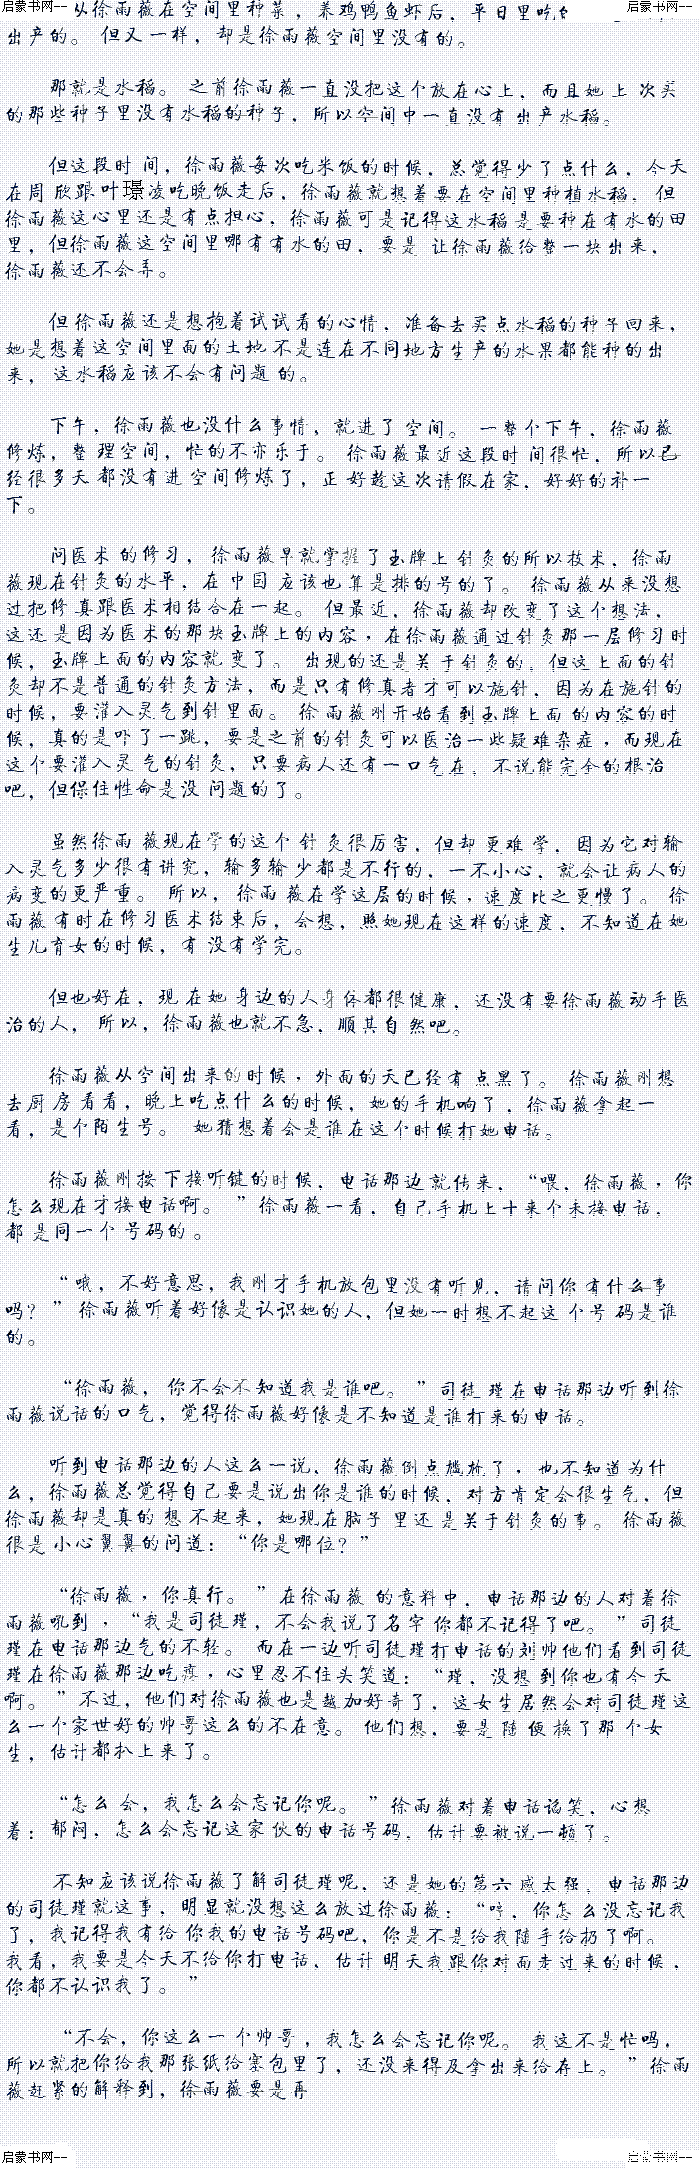 启蒙书网-- 启蒙书网--
从徐雨薇在空间里种菜，养鸡鸭鱼虾后，平日里吃
出产的。 但又一样，却是徐雨薇空间里没有的。
那就是水稻。 之前徐雨薇一直没把这个放在心上，而且她上 次买
的那些种子里没有水稻的种子，所以空间中一直没有出产水稻。
但这段时 间，徐雨薇每次吃米饭的时候，总觉得少了点什么，今天
在周 欣跟叶璟凌吃晚饭走后，徐雨薇就想着要在空间里种植水稻，但
徐雨薇这心里还是有点担心，徐雨薇可是记得这水稻是要种在有水的田
里，但徐雨薇这空间里哪有有水的田，要是 让徐雨薇给整一块出来，
徐雨薇还不会弄。
但徐雨薇还是想抱着试试看的心情，准备去买点水稻的种子回来，
她是想着这空间里面的土地不是连在不同地方生产的水果都能种的出
来， 这水稻应该不会有问题的。
下午，徐雨薇也没什么事情，就进了空间。 一整个下午，徐雨薇
修炼，整 理空间，忙的不亦乐乎。 徐雨薇最近这段时 间很忙，所以已
经很多天 都没有进空间修炼了，正 好趁这次请假在家，好好的补一
下。
问医术 的修习， 徐雨薇早就掌握了玉牌上 针灸的所以技术，徐雨
薇现在针灸的水平，在 中国 应该也算是排的号的了。 徐雨薇从来没想
过把修 真跟医术相结合在一起。 但最近，徐雨薇却改变了这个想法，
这还是因为医术的那块玉牌上的内容，在徐雨薇通过针灸那一层修习时
候，玉牌上面的内容就 变了。 出现的还是关于针灸的，但这上面的针
灸却不是普通的针灸方法，而是只有修真者才可以施针，因为在施针的
时候，要灌入灵气到针里面。 徐雨薇刚开始看到玉牌上面 的内容的时
候，真的是吓了一跳，要是之前的针灸可以医治一些疑难杂症，而现在
这个要灌入灵气的针灸，只要病人还有一口气在，不说能完全的根治
吧，但保住性命是没 问题的了。
虽然徐雨 薇现在学的这个 针 灸很厉害，但却更难 学，因为它对输
入灵气多少很有讲究，输多输 少都是不行的，一不小心，就会让病人的
病变的更严重。 所以， 徐雨 薇在学这层的时候，速度比之更慢了。 徐
雨薇有时在修习医术结束后，会想，照她现在这样的速度，不知道在她
生儿育女的时候，有 没有学完。
但也好在，现 在她 身边的人身体都很健康，还没有要徐雨薇动手医
治的人， 所以，徐雨薇也就不急，顺其自然吧。
徐雨薇从空间出来的时候，外面的天已经有 点黑了。 徐雨薇刚想
去厨房看看，晚上吃点什么的时候，她的手机响了，徐雨薇拿起一
看，是个陌生号。 她猜想着会是谁在这个时候打她电话。
徐雨薇刚按下接听键的时候，电话那边就传来，“喂，徐雨薇，你
怎么现在才接电话啊。 ”徐雨薇一看，自己手机上十来个未接电话，
都 是同一个 号码的。
“哦，不好意思，我刚才手机放包里没有听见，请问你 有什么事
吗？ ” 徐雨薇听着好像是认识她的人，但她一时想不起这 个号 码是谁
的。
“徐雨薇，你不会不知道我是谁吧。 ”司徒 瑾在电话那边听到徐
雨薇说话的口气，觉得徐雨薇好像是不知道是谁打来的电话。
听到电话那边的人这么一说，徐雨薇倒点尴尬了，也不知道为什
么，徐雨薇总觉得自己要是说出你是谁的时候，对方肯定会很生气，但
徐雨薇却是真的 想 不起来，她现在脑子 里还 是关于针灸的事。 徐雨薇
很是小心翼翼的问道：“你是哪位？”
“徐雨薇，你真行。 ”在徐雨薇 的意料中，电话那边的人对着徐
雨薇吼到，“我是司徒瑾，不会我说了名字 你都不记得了吧。”司徒
瑾在电话那边气的不轻。 而在一边听司徒瑾打电话的刘帅他们看到司徒
瑾在徐雨薇那边吃瘪，心里忍不住头笑道：“瑾，没想 到你也有今天
啊。 ”不过，他们对徐雨薇也是越加好奇了，这女生居然会对司徒瑾这
么一个家世好的帅哥这么的不在意。 他们想，要是 随 便换了那 个女
生，估计都扒上来了。
“怎么 会，我怎么会忘记你呢。 ”徐雨薇对着电话谄笑，心想
着：郁闷，怎么会忘记这家伙的电话号码，估计要被说一顿了。
不知应该说徐雨薇了解司徒瑾呢，还是她的第六感太强，电话那边
的司徒瑾就这事，明显就没想这么放过徐雨薇：“哼，你怎么没忘记我
了，我记得我有给 你我的电话号码吧，你是不是给我随手给扔了啊。
我看，我要是今天不给你打电话，估计 明天我跟你对面走过来的时候，
你都不认识我了。 ”
“不会，你这么一 个帅哥，我怎么会忘记你呢。 我这不是忙吗，
所以就把你给我那张纸给塞包里了，还没来得及拿出来给存上。”徐雨
薇赶紧的解释到，徐雨薇要是再
启蒙书网-- 启蒙书网--